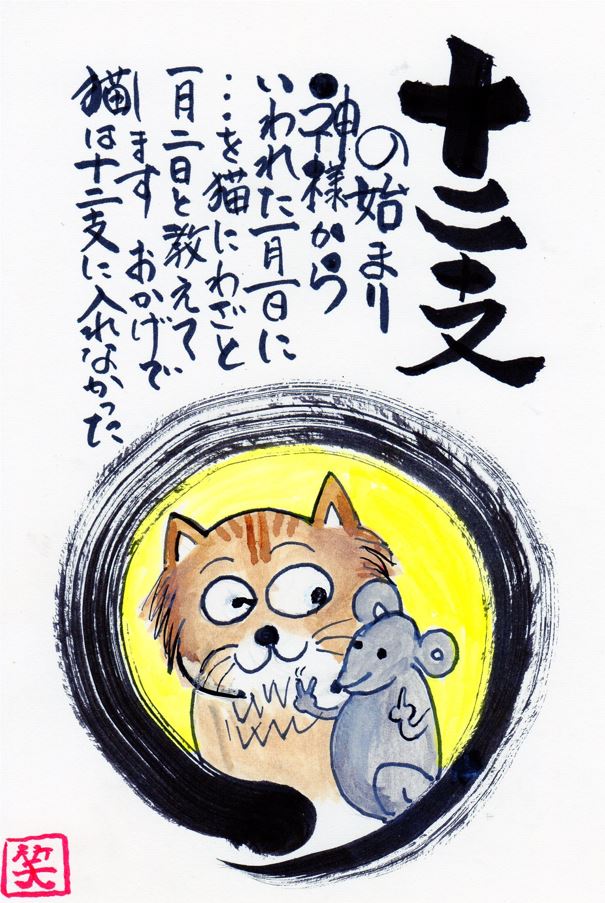 十二支
の始まり
神様から
いわれた一月一日に
…を猫にわざと
一月二日と教えて
します おかげで
猫は十二支に入れなかった
笑